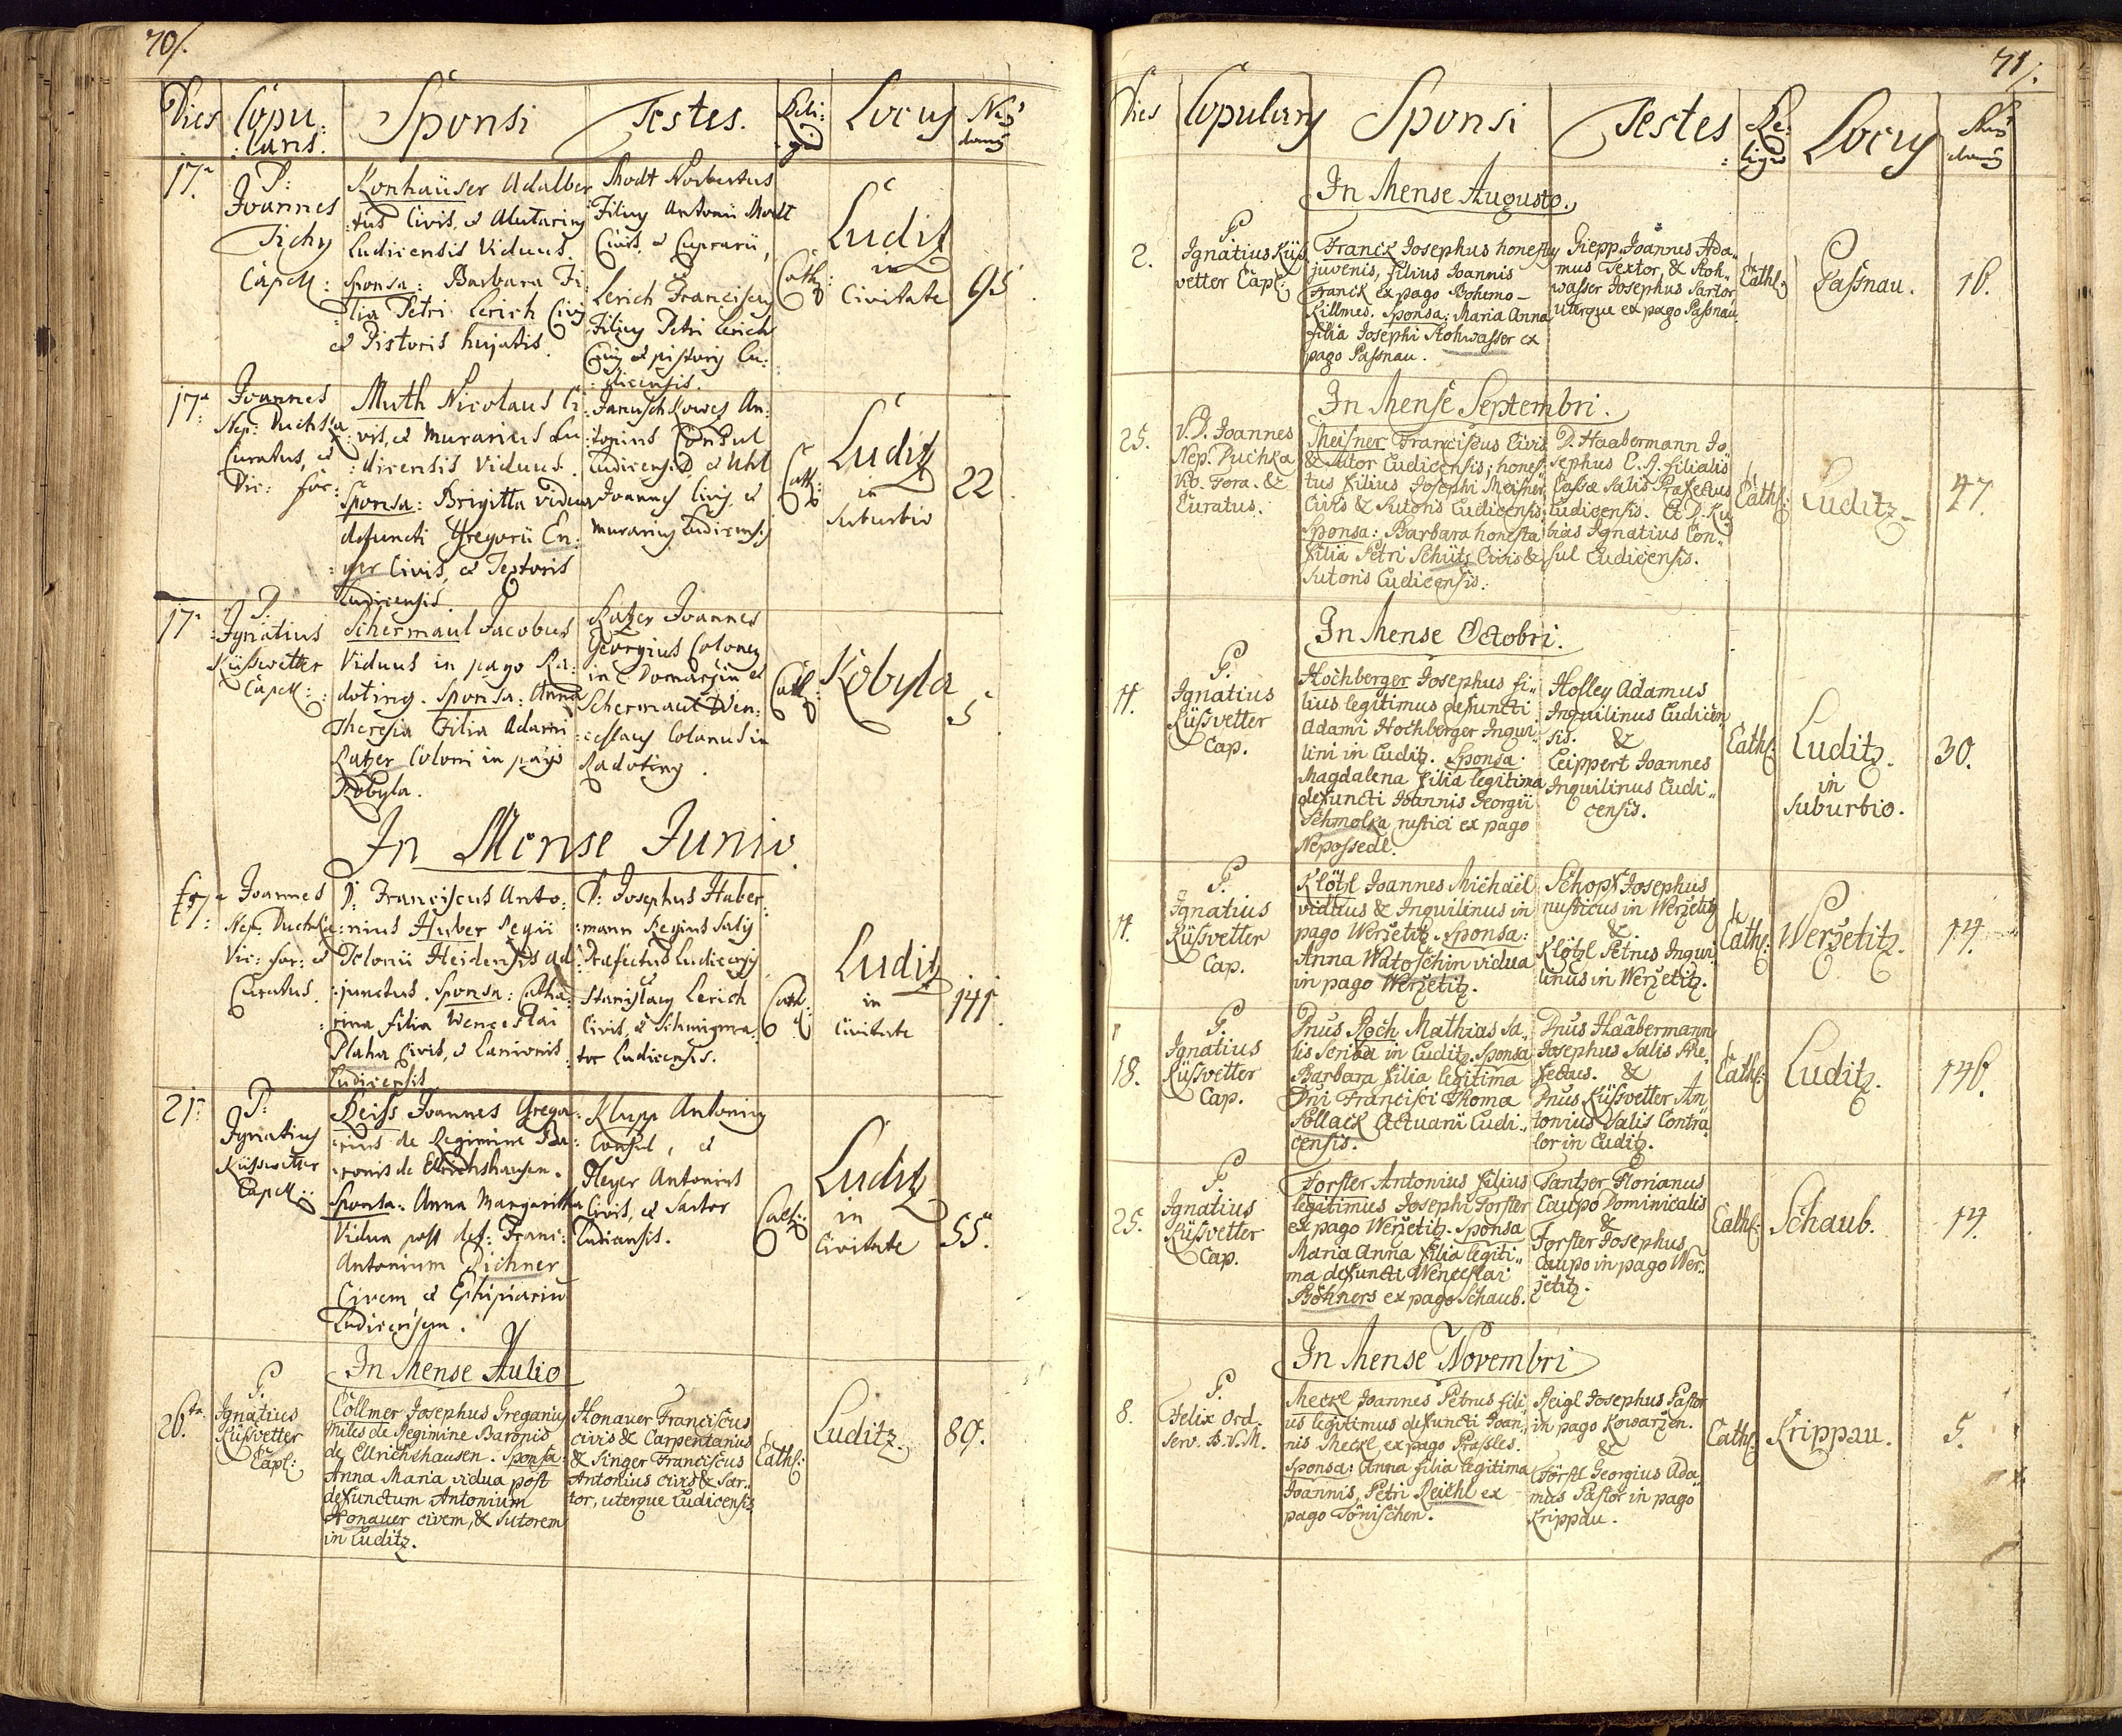 70/.
Dies Copu: Sponsi Testes. Reli: Locus Nrus
:lans. gio domus
17a
P:
Joannes
Tichy
Capell:
Konhaüser Adalber
:tus Civis, et Alutarius
Ludicensis Viduus.
Sponsa: Barbara Fi
:lia Petri Lerich Civis
et Pistoris hujatis.
Modt Norbertus
Filius Antonii Modt
Civis, et Cuprarii,
et
Lerich Franciscus
Filius Petri Lerich
Civis et pistoris Lu:
:dicensis.
Cath:
Luditz
in
Civitate
95.
17a
Joannes
Nep: Puchka
Curatus, et
Vic: for:
Muth Nicolaus Ci
:vis, et Murarius Lu
:dicensis Viduus.
Sponsa: Brigitta vidua
defuncti Gregorii En:
:ger Civis, et Textoris
Ludicensis.
Januschkowez An:
:tonius Consul
Ludicens: et Uhl
Joannes Civis, et
murarius Ludicensis
Cath:
Luditz
in
suburbio
22.
17a
P:
Ignatius
Küssvetter
Capell:
Schermaul Jacobus
Viduus in pago Ra:
doting. Sponsa: Anna
Theresia Filia Adami
Ratzer Coloni in pago
Kobyla.
Ratzer Joannes
Georgius Colonus
in Domaschin et
Schermaul Wen:
:ceslaus Colonus in
Radoting.
Cath:
Kobyla
5.
In Mense Junio.
17a
Joannes
Nep: Puchka
Vic: for: et
Curatus.
D: Franciscus Anto:
:nius Huber Regii
Telonii Heidensis ad
:junctus. Sponsa: Catha:
:rina filia Wenceslai
Plaha Civis, et Lanionis
Ludicensis.
D: Josephus Haber
:mann Regius Salis
Praefectus Ludicensis
et
Stanislaus Lerich
Civis, et Schmigma
tor Ludicensis.
Cath:
Luditz
in
Civitate
141.
21a
P:
Ignatius
Küssvetter
Capell:
Reiss Joannes Grego:
:rius de Regimine Ba:
:ronis de Ellrichshausen.
Sponsa: Anna Margaritha
Vidua post def: Franc:
Antonium Pichner
Civem, et Ephipiariū
Ludicensem.
Klupp Antonius
Consul, et
Heyer Antonius
Civis, et Sartor
Ludicensis.
Cath:
Luditz
in
Civitate
55.
In Mense Julio
26ta
P.
Ignatius
Küssvetter
Capl:
Collmer Josephus Gregarius
miles de Regimine Baronis
de Ellrichshausen. Sponsa:
Anna Maria vidua post
defunctum Antonium
Honauer civem, & Sutorem
in Luditz.
Honauer Franciscus
civis & Carpentarius
& Singer Franciscus
Antonius civis & Sar„
tor, uterque Ludicensis.
Cath:
Luditz.
89.
71/.
Dies Copulans Sponsi Testes Re: Locus Nrus
ligio domus
In Mense Augusto.
2.
P.
Ignatius Küss
vetter Capl:
Franck Josephus honestus
juvenis, filius Joannis
Franck ex pago Bohemo-
Killmes. Sponsa: Maria Anna
filia Josephi Stohwasser ex
pago Passnau.
Giepp Joannes Ada„
mus Textor, & Stoh„
wasser Josephus Sartor
uterque ex pago Passnau.
Cath:
Passnau.
16.
In Mense Septembri.
25.
V.D. Joannes
Nep. Puchka
Vic. Fora. &
Curatus.
Meisner Franciscus Civis
& Sutor Ludicensis; hones„
tus filius Josephi Meisner
Civis & Sutoris Ludicensis;
Sponsa: Barbara honesta
filia Petri Schütz Civis &
Sutoris Ludicensis.
D. Haabermann Jo„
sephus C. R. filialis
Cassae Salis Praefectus
Ludicensis. Et D. Ku„
bias Ignatius Con„
sul Ludicensis.
Cath:
Luditz.
47.
In Mense Octobri.
11.
P.
Ignatius
Küssvetter
Cap.
Hochberger Josephus fi„
lius legitimus defuncti
Adami Hochberger Inqui„
lini in Luditz. Sponsa:
Magdalena filia legitima
defuncti Joannis Georgii
Schmolka rustici ex pago
Nepossedl.
Holley Adamus
Inquilinus Ludicen
sis. &
Leippert Joannes
Inquilinus Ludi„
censis.
Cath:
Luditz.
in
suburbio.
30.
11.
P.
Ignatius
Küssvetter
Cap.
Klötzl Joannes Michaël
viduus & Inquilinus in
pago Werzetitz. Sponsa:
Anna Watoschin vidua
in pago Werzetitz.
Schopf Josephus
rusticus in Werzetitz
&
Klötzl Petrus Inqui„
linus in Werzetitz.
Cath:
Werzetitz.
14.
18.
P.
Ignatius
Küssvetter
Cap.
Dnus Roch Mathias Sa„
lis Scriba in Luditz. Sponsa
Barbara filia legitima
Dni Francisci Thoma
Pollack Actuarii Ludi„
censis.
Dnus Haabermann
Josephus Salis Prae„
fectus. &
Dnus Küssvetter An
tonius Salis Contra
lor in Luditz.
Cath:
Luditz.
146.
25.
P.
Ignatius
Küssvetter
Cap.
Forster Antonius filius
legitimus Josephi Forster
ex pago Werzetitz. Sponsa
Maria Anna filia legiti„
ma defuncti Wenceslai
Böhners ex pago Schaub.
Tantzer Florianus
Caupo Dominicalis
&
Forster Josephus
Caupo in pago Wer„
zetitz.
Cath:
Schaub.
14.
In Mense Novembri
8.
P.
Felix Ord.
Serv. B.V.M.
Meckl Joannes Petrus fili„
us legitimus defuncti Joan„
nis Meckl, ex pago Prassles.
Sponsa: Anna filia legitima
Joannis Petri Reichl ex
pago Tönischen.
Reigl Josephus Pastor
in pago Kowarzen.
&
Förstl Georgius Ada„
mus Pastor in pago
Krippau.
Cath:
Krippau.
5.